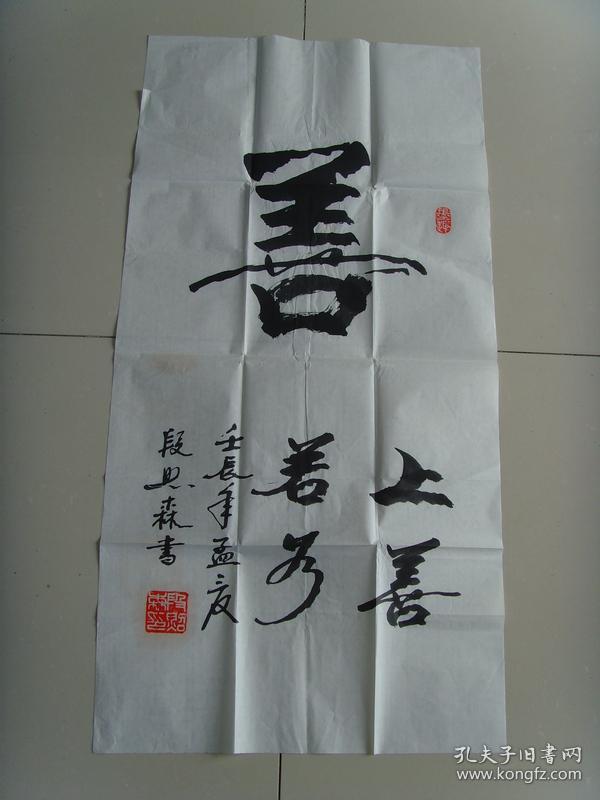 善
上善
若水
壬辰年孟夏
段森書
孔夫子旧书网
www.kongfz.com